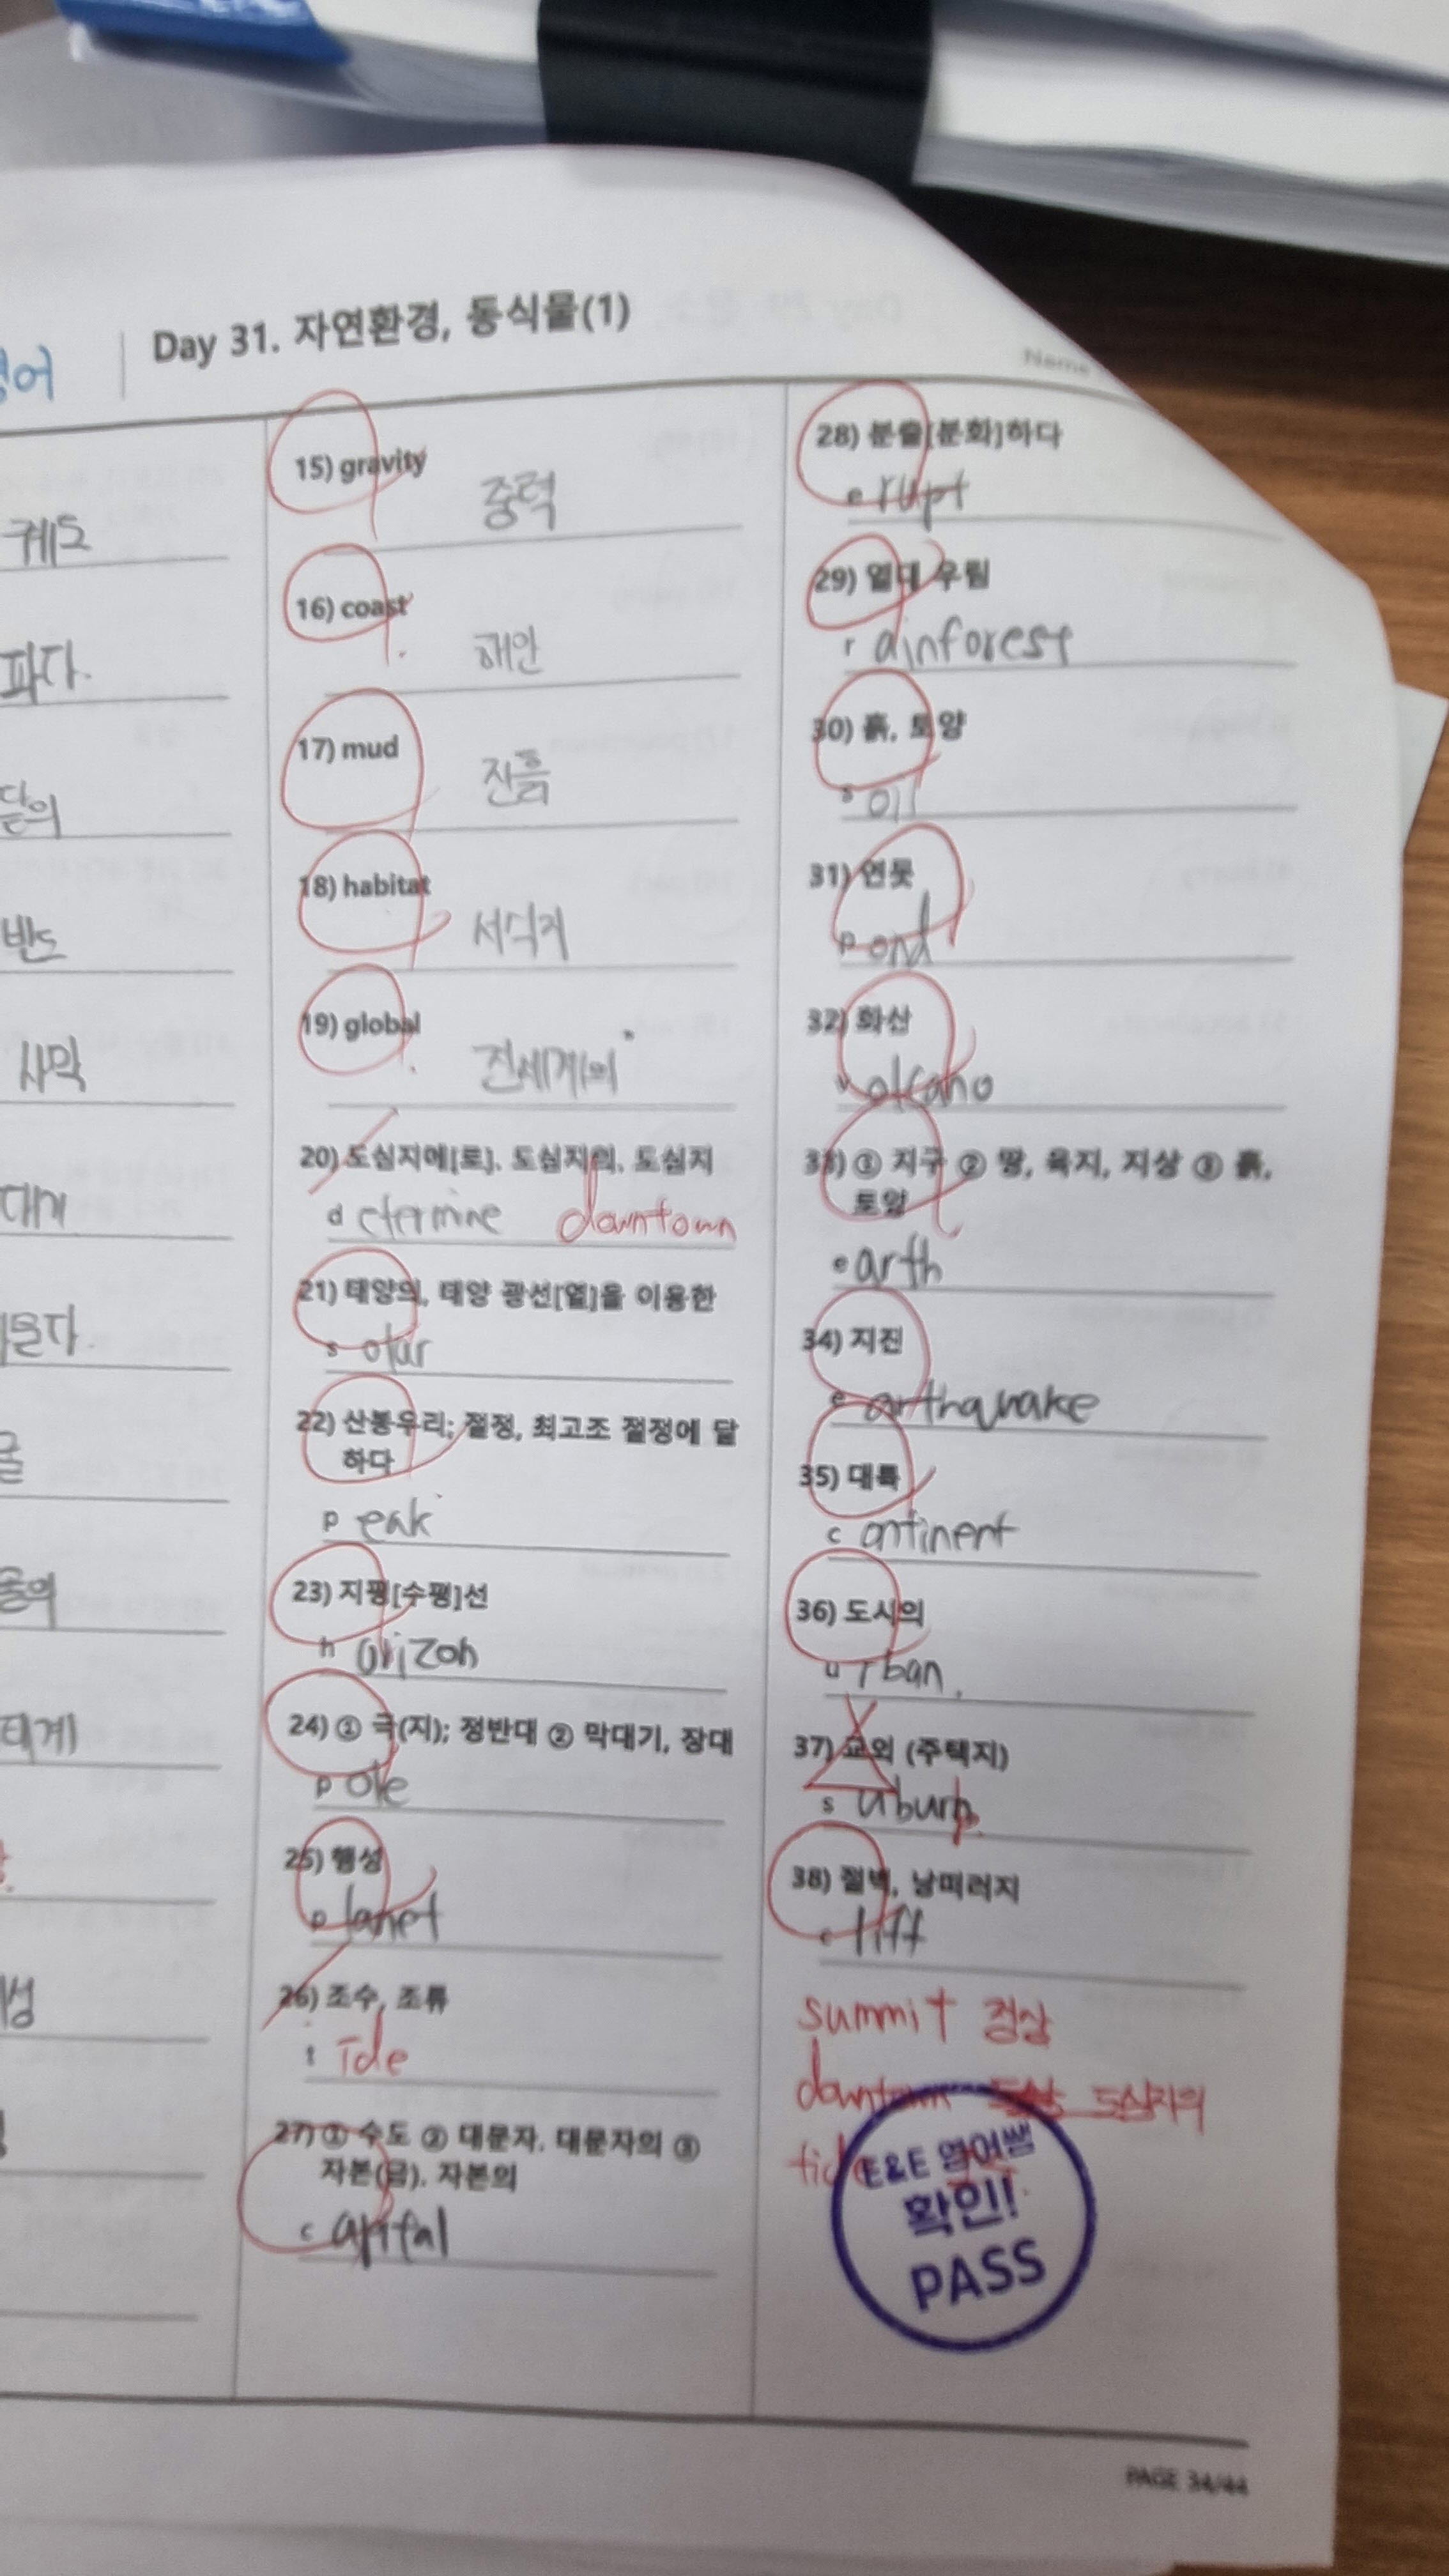 영어
Day 31. 자연환경, 동식물(1)
Name
궤도
파다.
달의
반도
사막
15) gravity
중력
16) coast
해안
17) mud
진흙
18) habitat
서식지
19) global
전세계의
20) 도심지에[로], 도심지의, 도심지
determine downtown
21) 태양의, 태양 광선[열]을 이용한
solar
22) 산봉우리; 절정, 최고조 절정에 달
하다
peak
23) 지평[수평]선
horizon
24) ① 극(지); 정반대 ② 막대기, 장대
pole
25) 행성
planet
26) 조수, 조류
tide
27) ① 수도 ② 대문자, 대문자의 ③
자본(금), 자본의
capital
28) 분출[분화]하다
erupt
29) 열대 우림
rainforest
30) 흙, 토양
soil
31) 연못
pond
32) 화산
volcano
33) ① 지구 ② 땅, 육지, 지상 ③ 흙,
토양
earth
34) 지진
earthquake
35) 대륙
continent
36) 도시의
urban.
37) 교외 (주택지)
suburb
38) 절벽, 낭떠러지
cliff
summit 정상
downtown 도심지의
tide
E&E 영어쌤
확인!
PASS
PAGE 34/44